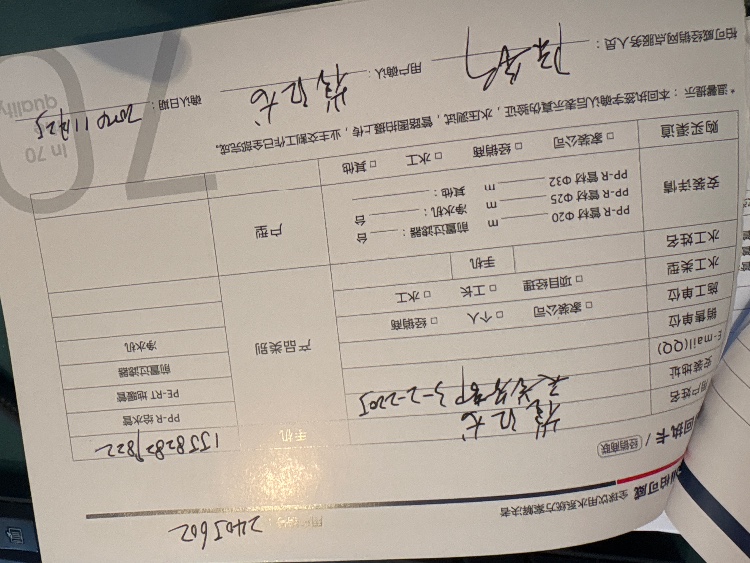 柏可威 全球饮用水系统方案解决者
2405602
回执卡 / 经销商联
用户姓名
手机 15582827822
安装地址 3-2-2205
E-mail(QQ)
销售单位 □ 家装公司 □ 个人 □ 经销商
施工单位
水工类型 □ 项目经理 □ 工长 □ 水工
水工姓名 手机
产品类别
PP-R 给水管
PE-RT 地暖管
前置过滤器
净水机
安装详情
PP-R 管材 Φ20 m 前置过滤器： 台
PP-R 管材 Φ25 m 净水机： 台
PP-R 管材 Φ32 m 其他：
户型
购买渠道 □ 家装公司 □ 经销商 □ 水工 □ 其他
* 温馨提示：本回执签字确认后表示真伪验证，水压测试，管路图拍摄上传，业主交割工作已全部完成。
柏可威经销网点服务人员：
用户确认：
确认日期：
70
In 70
quality